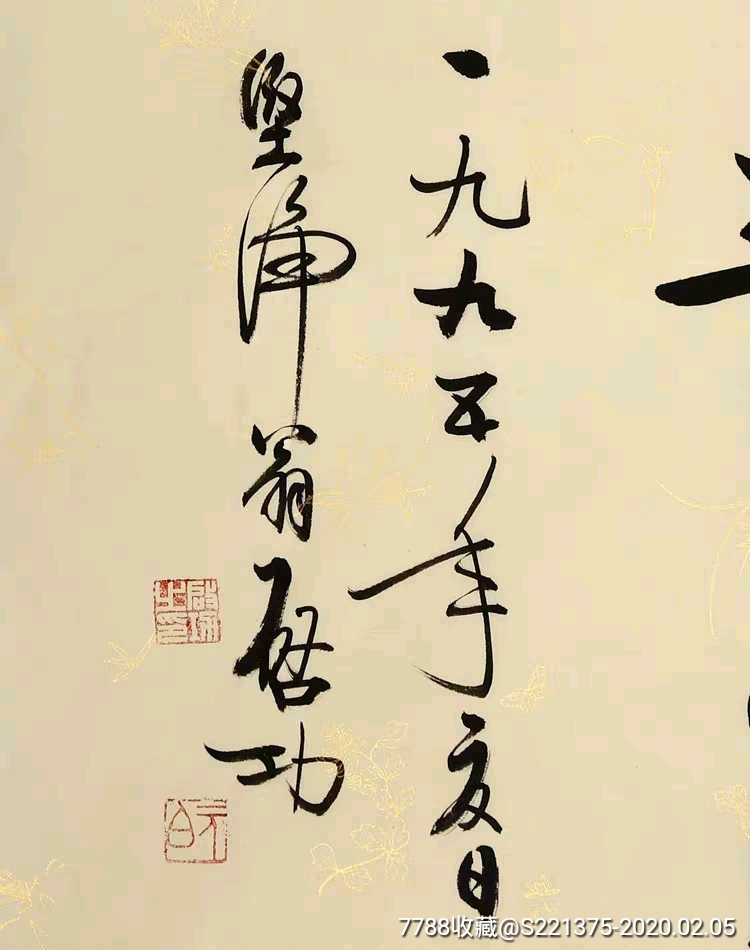 一九九五年夏日
坚净翁启功
7788收藏@S221375-2020.02.05